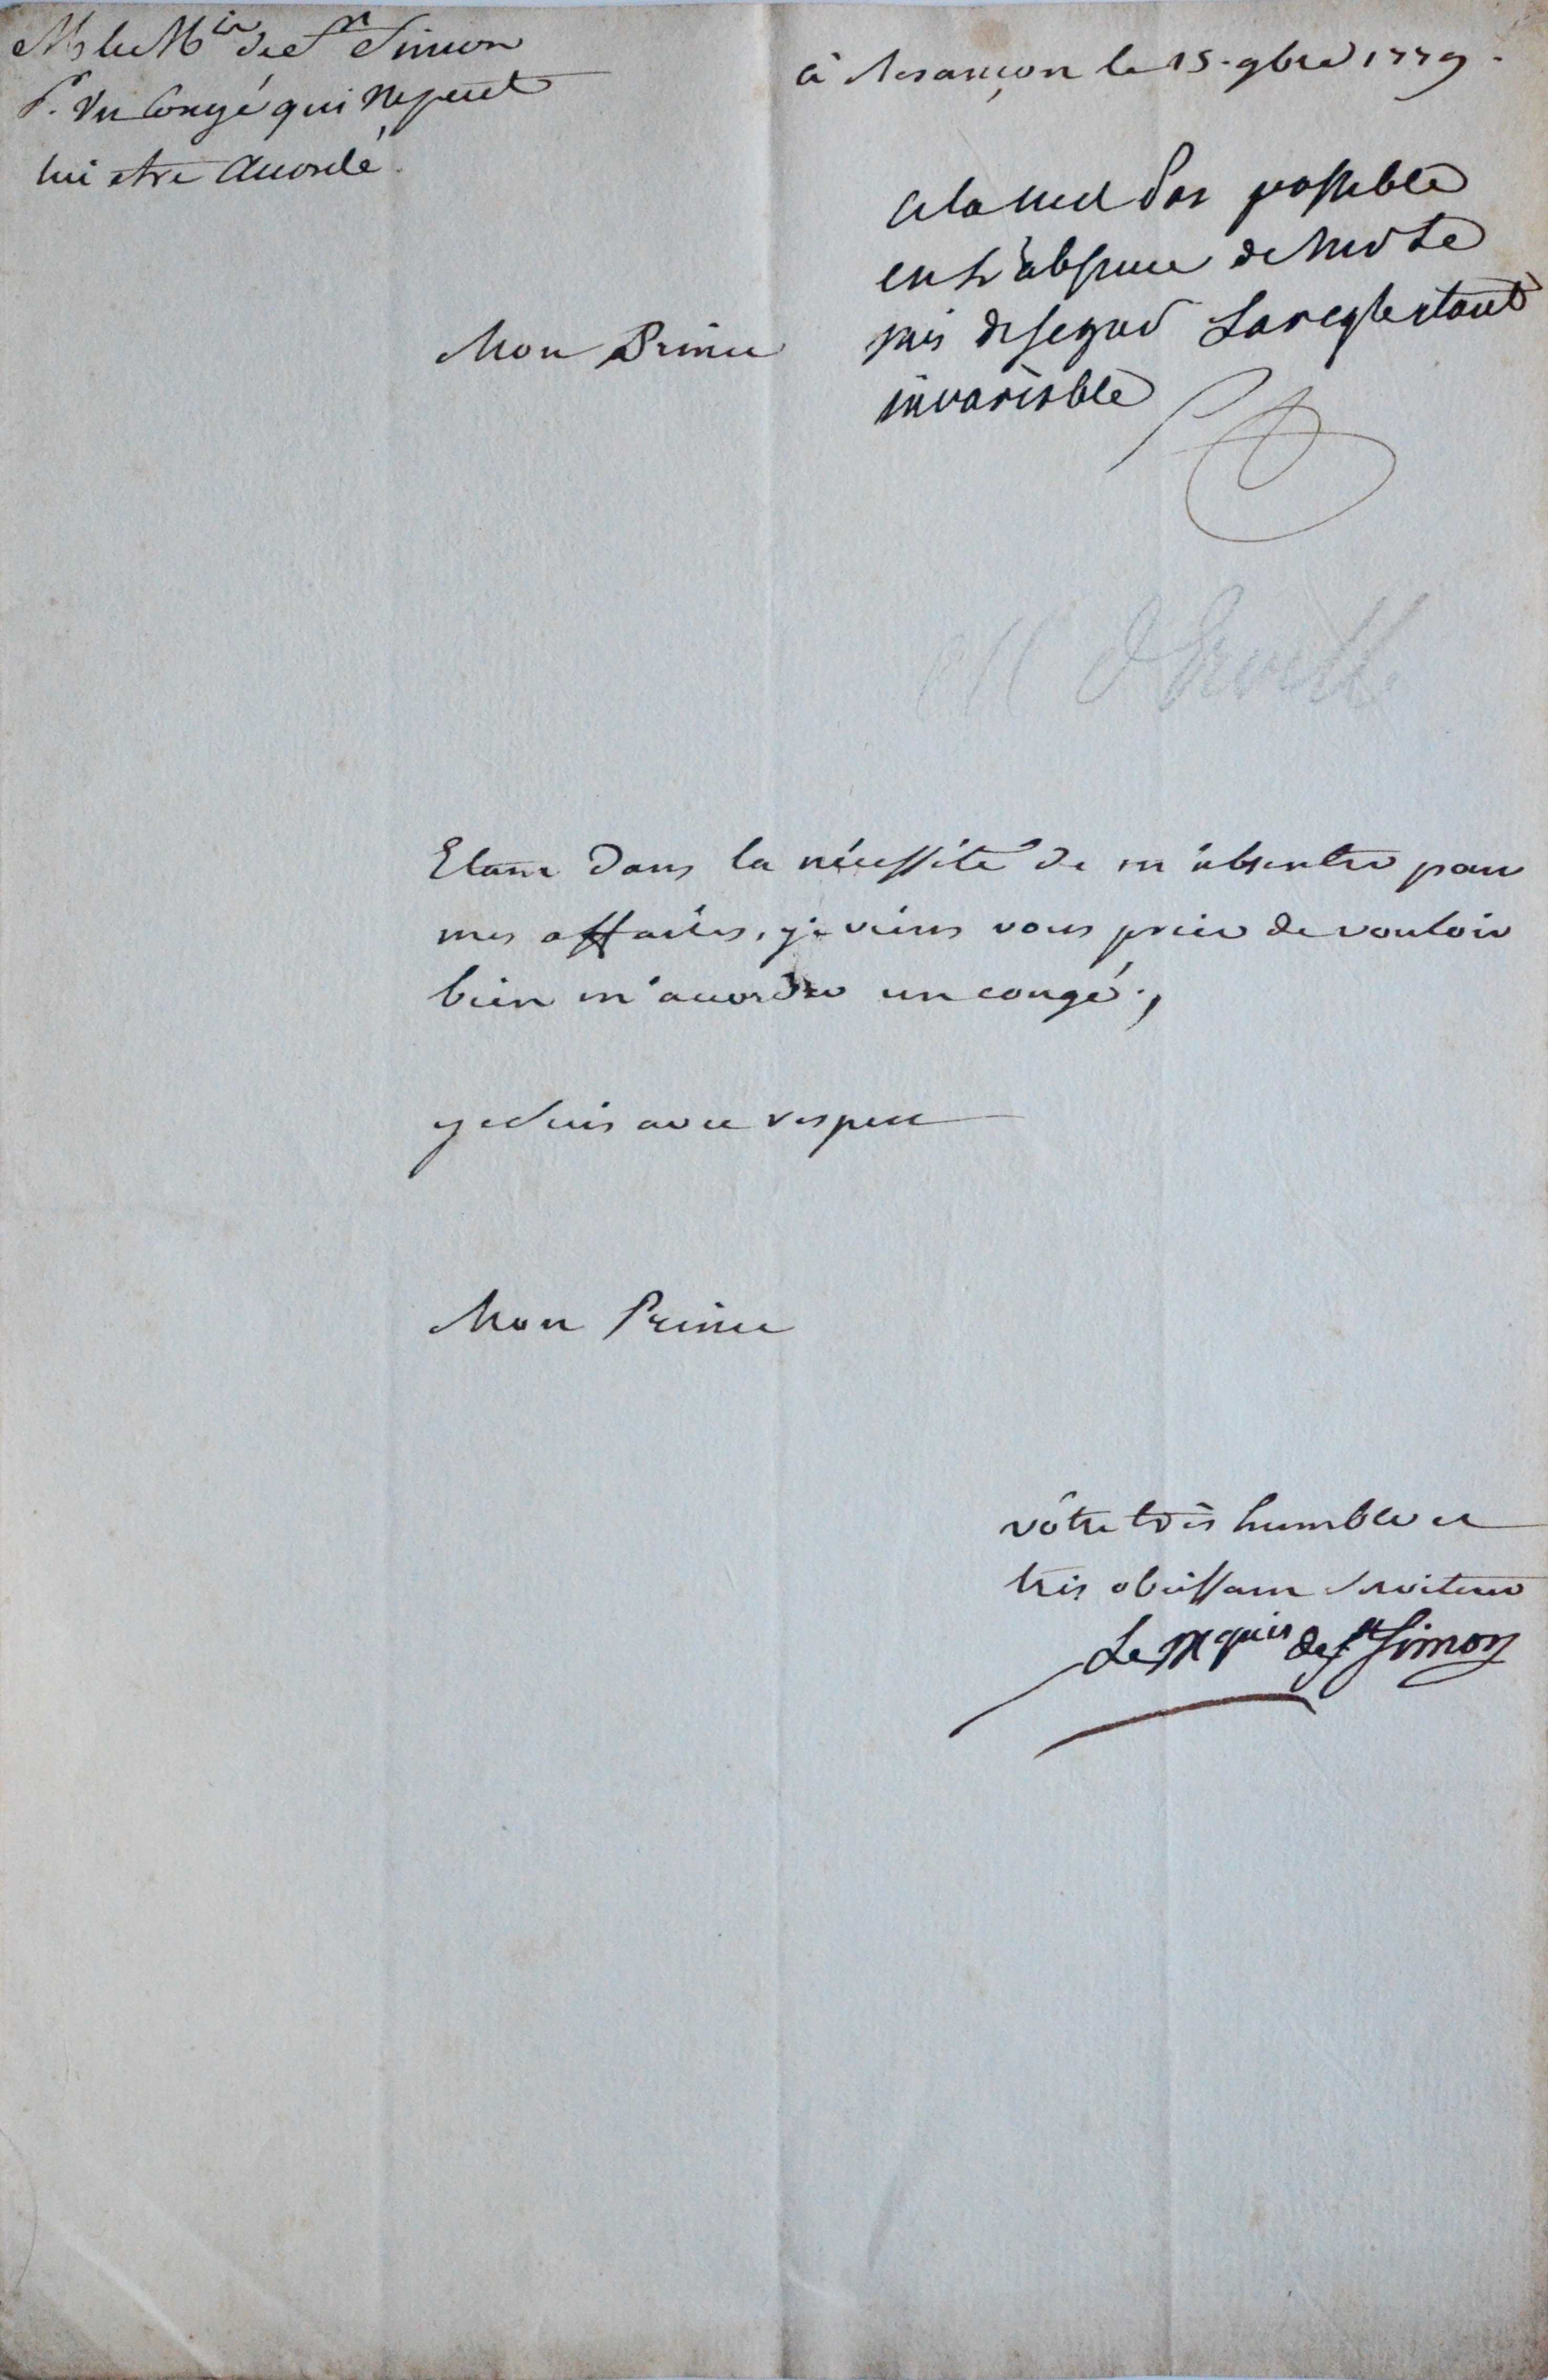 M. le M.is de St Simon
P. Un Congé qui ne peut
lui etre accordé.
à Besançon le 15. 9bre 1779.
cela nest pas possible
en L'absence de Mr Le
de segur La regle etant
invariable
Mon Prince
Etant dans la nécessité de m'absenter pour
mes affaires, je viens vous prier de vouloir
bien m'accorder un congé.,
je suis avec respect
Mon Prince
vôtre très humble et
très obeissant serviteur
Le Mquis de St Simon